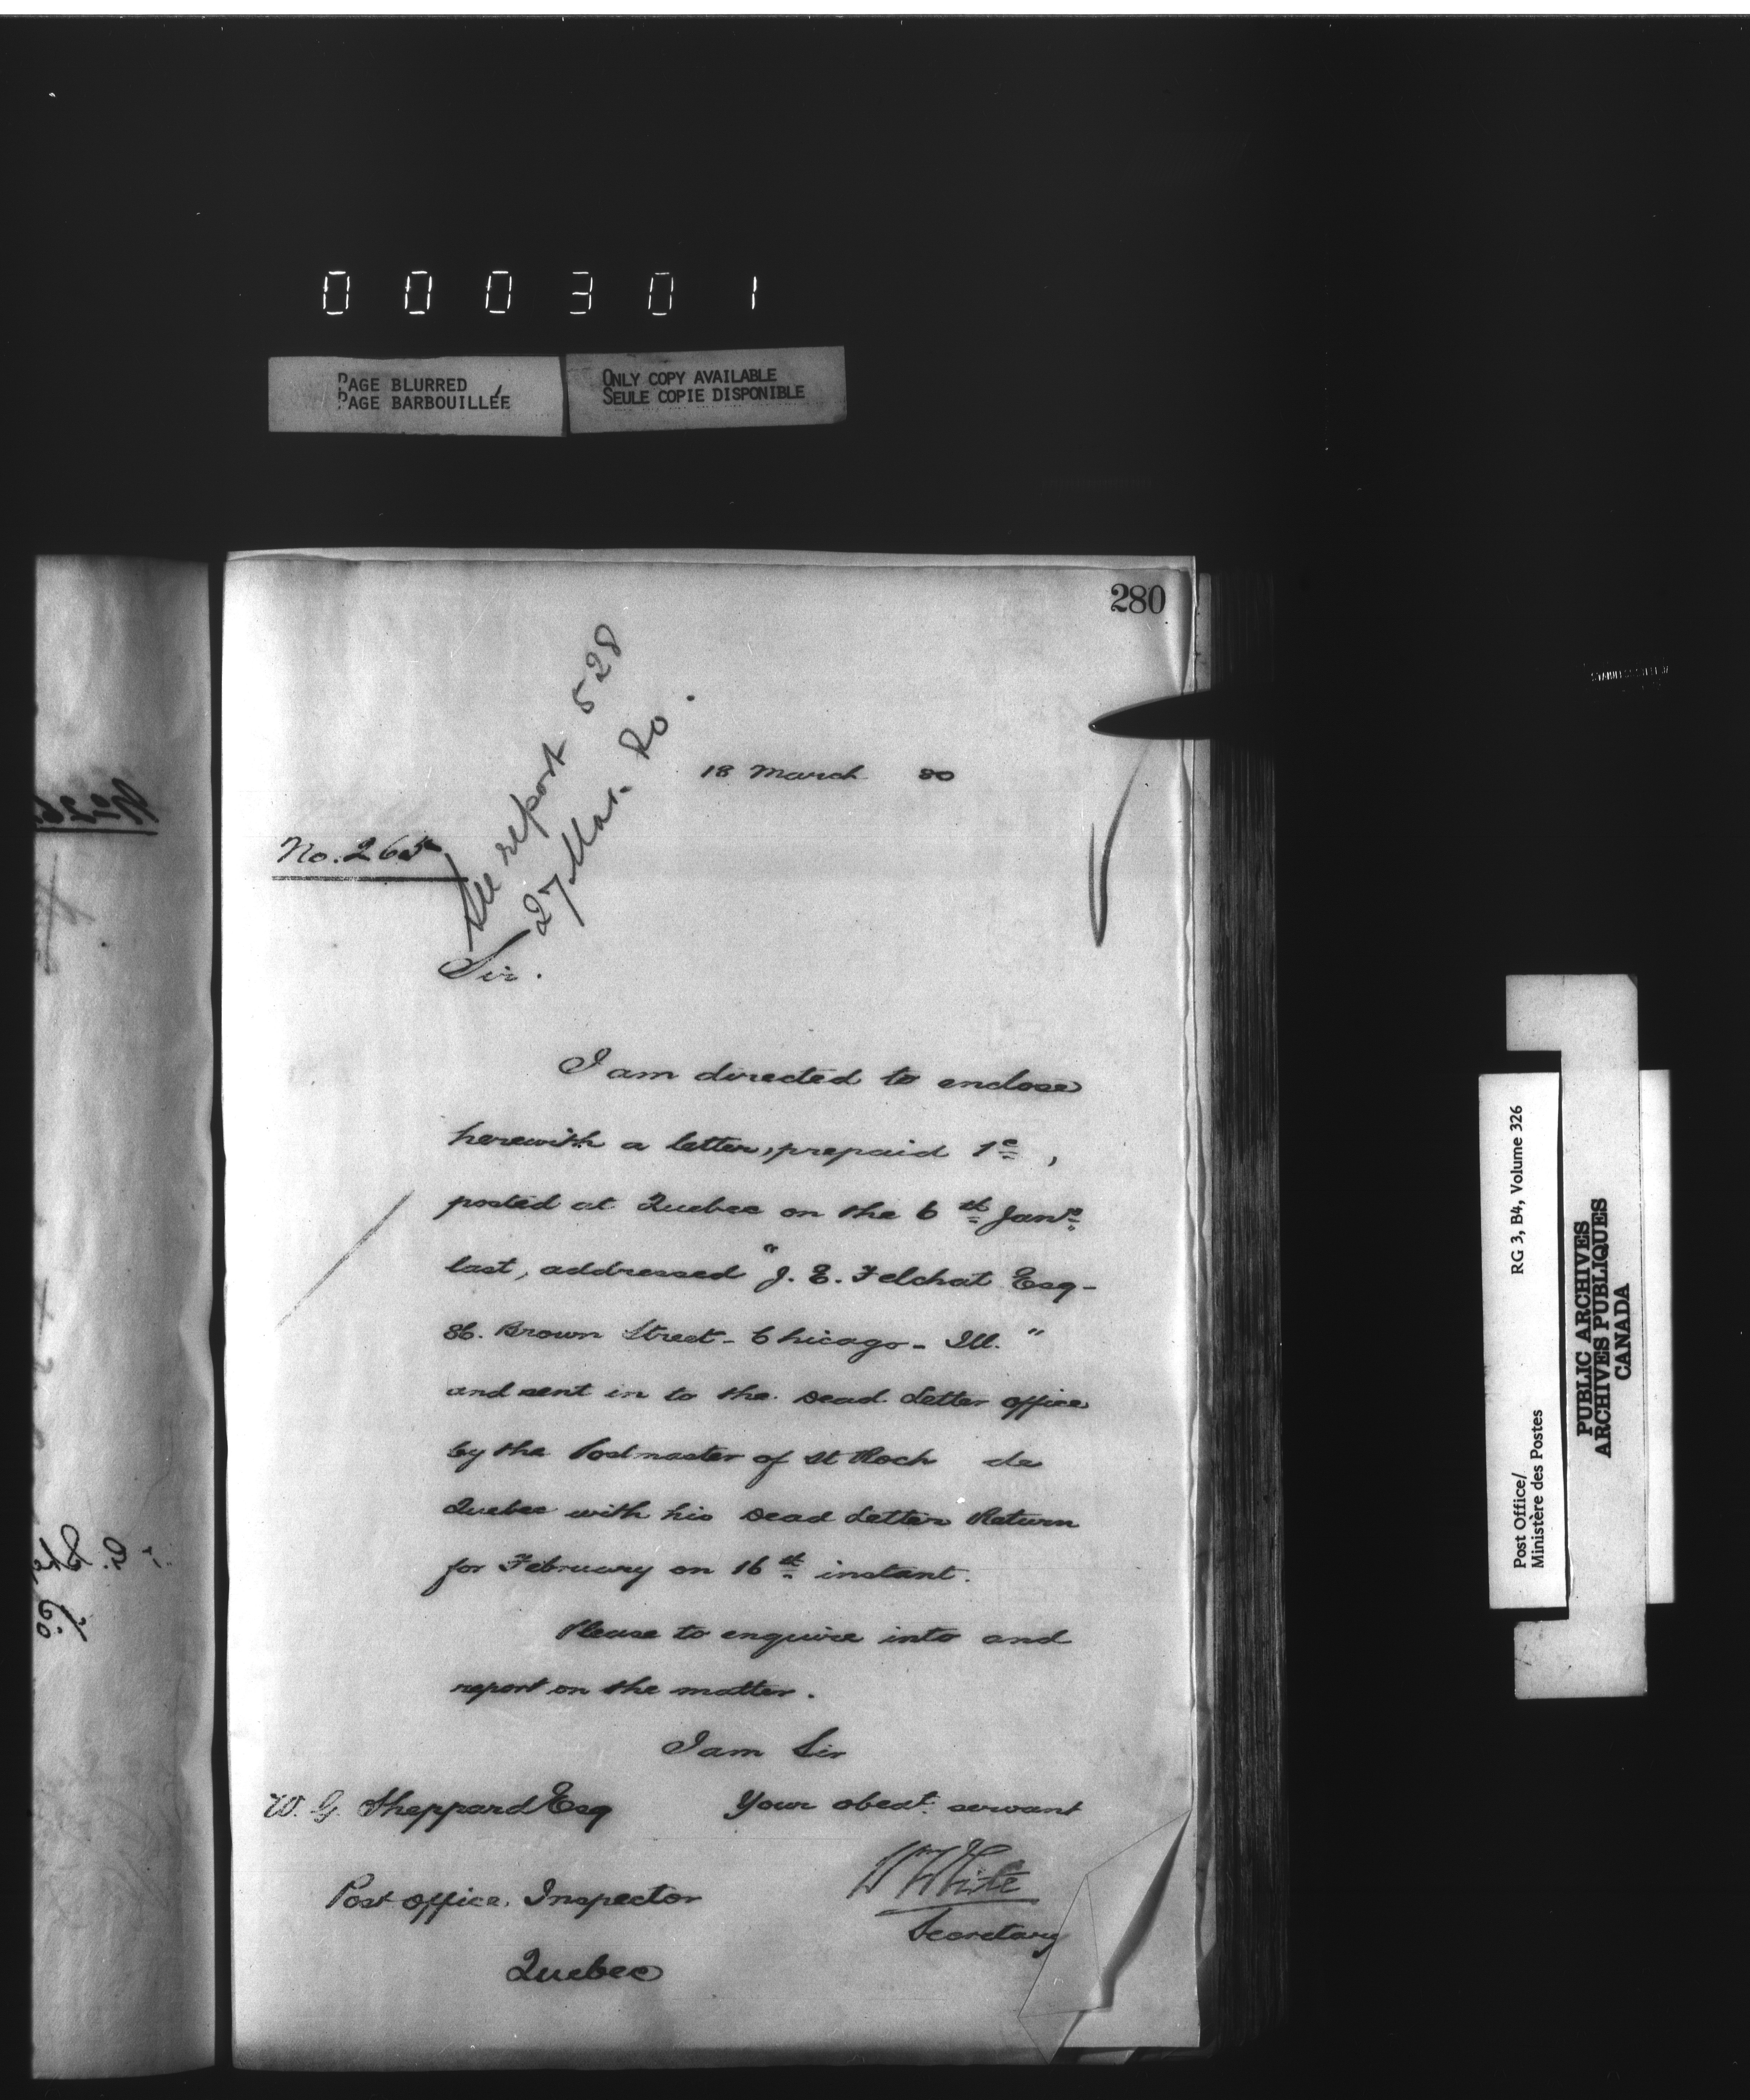 000301
PAGE BLURRED
PAGE BARBOUILLÉE
ONLY COPY AVAILABLE
SEULE COPIE DISPONIBLE
280
See report 528
27 Mar. 80.
18 March 80
No. 265
Sir.
I am directed to enclose
herewith a letter, prepaid 1c,
posted at Quebec on the 6th Jany
last, addressed "J. E. Felchat Esq-
86. Brown Street- Chicago- Ill."
and sent in to the Dead Letter office
by the Postmaster of St Roch de
Quebec with his Dead Letter Return
for February on 16th instant.
Please to enquire into and
report on the matter.
I am Sir
Your obedt. servant
W White
Secretary
W. G. Sheppard Esq
Post office Inspector
Quebec
Post Office/
Ministère des Postes
RG 3, B4, Volume 326
PUBLIC ARCHIVES
ARCHIVES PUBLIQUES
CANADA